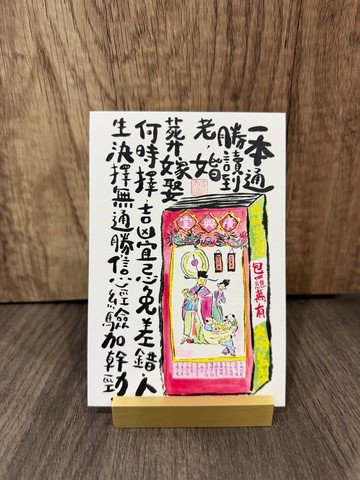 一本通
勝讀到
老，婚
葬嫁娶
何時擇，吉凶宜忌免差錯，人
生決擇無通勝，信心經驗加幹勁
包羅萬有